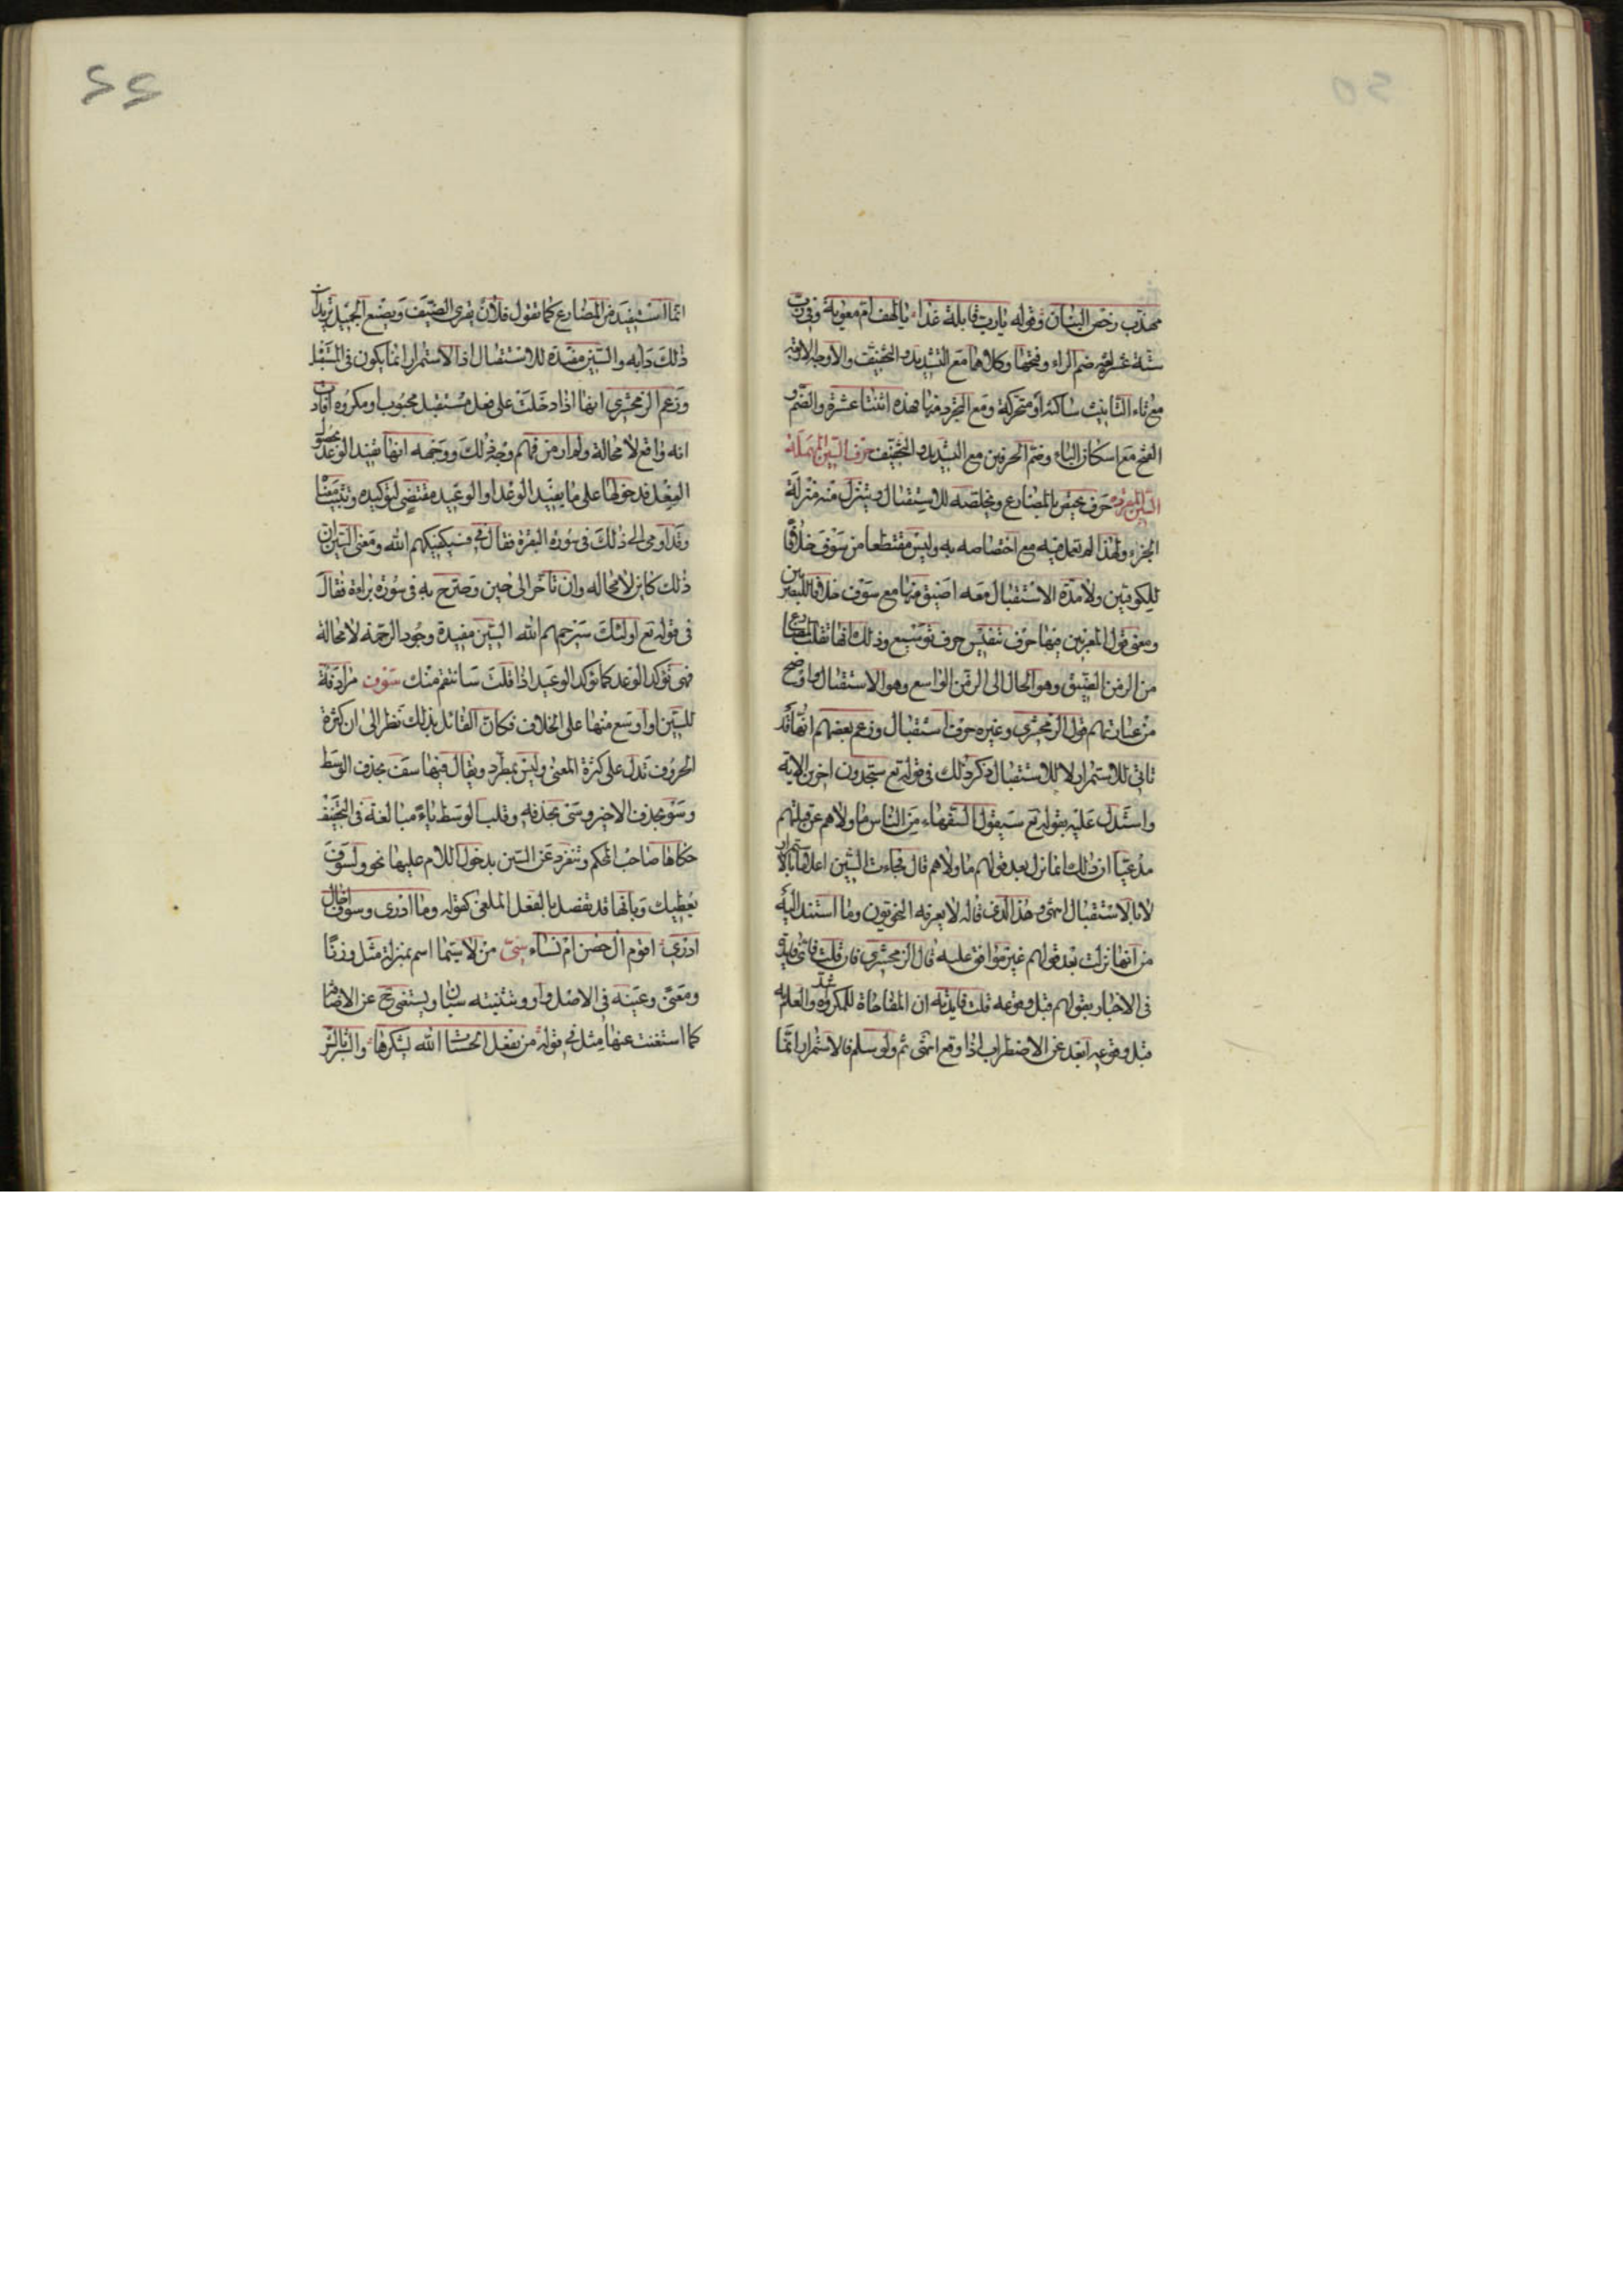 مهذب رخص البنان وقوله يا رب قابلة غدا يا لهف ام معوية وفي رب
ستة عشر لغة ضم الراء وفتحها وكلاهما مع التشديد والتخفيف والاوجه الاربعة
مع تاء التانيث ساكنة او متحركة ومع التجرد منها فهذه اثنتا عشرة والضم و
الفتح مع اسكان الباء وضم الحرفين مع التشديد والتخفيف حرف السين المهملة
السين المفردة حرف يختص بالمضارع ويخلصه للاستقبال وينزل منه منزلة
الجزء ولهذا لم تعمل فيه مع اختصاصه به وليس مقتطعا من سوف خلافا
للكوفيين ولا مدة الاستقبال معه اضيق منها مع سوف خلافا للبصريين
ومعنى قول المعربين فيها حرف تنفيس حرف توسيع وذلك انها تقلب المضارع
من الزمن الضيق وهو الحال الى الزمن الواسع وهو الاستقبال واوضح
من عبارتهم قول الزمخشري وغيره حرف استقبال وزعم بعضهم انها قد
تاتي للاستمرار لا للاستقبال ذكر ذلك في قوله تع ستجدون اخرين الاية
واستدل عليه بقوله تع سيقول السفهاء من الناس ما ولاهم عن قبلتهم
مدعيا ان ذلك انما نزل بعد قولهم ما ولاهم قال فجاءت السين اعلاما بالاستمرار
لا بالاستقبال انتهى وهذا الذي قاله لا يعرفه النحويون وما استند اليه
من انها نزلت بعد قولهم غير موافق عليه قال الزمخشري فان قلت فاي فايدة
في الاخبار بقولهم قبل وقوعه قلت فايدته ان المفاجاة للمكروه اشد والعلم به
قبل وقوعه ابعد عن الاضطراب اذا وقع انتهى ثم ولو سلم فالاستمرار انما
انما استفيد من المضارع كما تقول فلان يقري الضيف ويصنع الجميل تريد ان
ذلك دابه والسين مفيدة للاستقبال اذ الاستمرار انما يكون في المستقبل
وزعم الزمخشري انها اذا دخلت على فعل مستقبل محبوب او مكروه افادت
انه واقع لا محالة ولم ار من فهم وجه ذلك ووجهه انها تفيد الوعد بحصول
الفعل فدخولها على ما يفيد الوعد او الوعيد مقتضي لتوكيده وتثبيت معناه
وقد اومى الى ذلك في سورة البقرة فقال في فسيكفيكهم الله ومعنى السين ان
ذلك كاين لا محالة وان تاخر الى حين وصرح به في سورة براءة فقال
في قوله تع اولئك سيرحمهم الله السين مفيدة وجود الرحمة لا محالة
فهي تؤكد الوعد كما تؤكد الوعيد اذا قلت سانتقم منك سوف مرادفة
للسين او اوسع منها على الخلاف فكان القائل بذلك نظر الى ان كثرة
الحروف تدل على كثرة المعنى وليس بمطرد ويقال فيها سف بحذف الوسط
وسو بحذف الاخير وسي بحذفه وقلب الوسط ياء مبالغة في التخفيف
حكاها صاحب المحكم وتنفرد عن السين بدخول اللام عليها نحو ولسوف
يعطيك وبانها قد تفصل بالفعل الملغى كقوله وما ادري وسوف اخال
ادري اقوم ال حصن ام نساء سي من لا سيما اسم بمنزلة مثل وزنا
ومعنى وعينه في الاصل واو وتثنيته سيان ويستغني ح عن الاضافة
كما استغنت عنها مثل في قوله من يفعل الحسنات الله يشكرها والشر بالشر